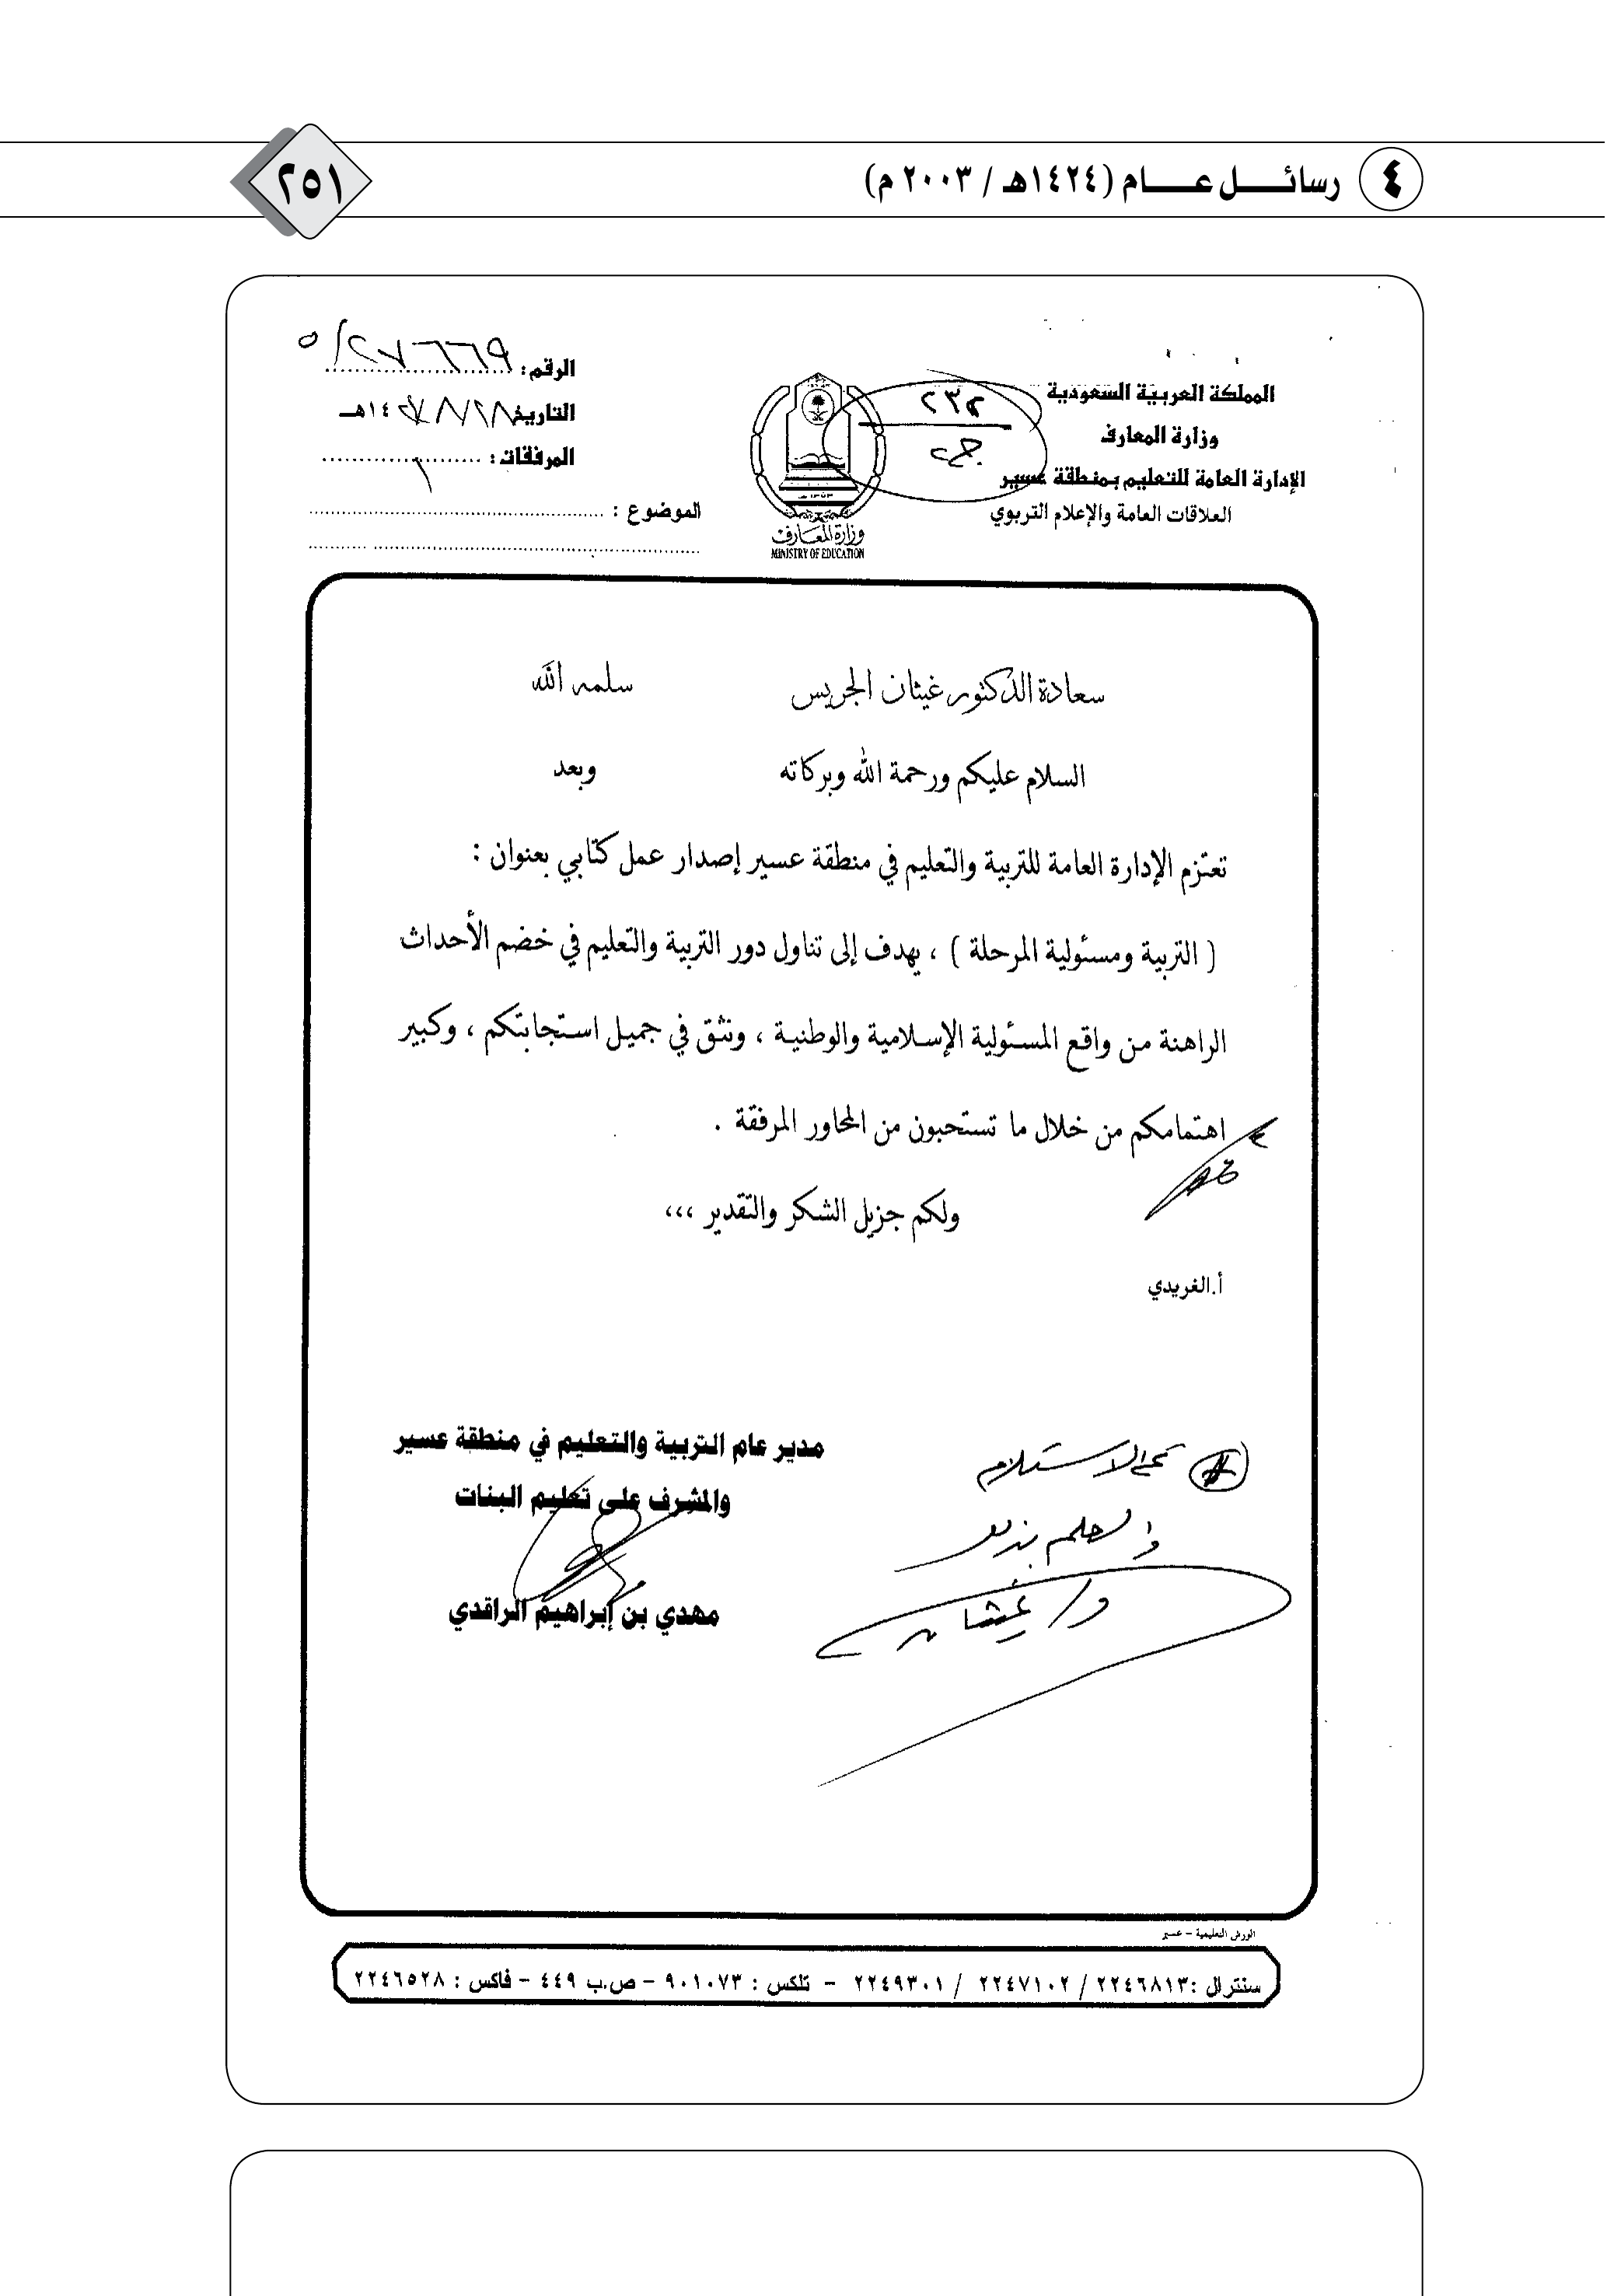 ٤ رسائــــل عــــام (١٤٢٤هـ / ٢٠٠٣ م)
٢٥١
المملكة العربية السعودية
وزارة المعارف
الإدارة العامة للتعليم بمنطقة عسير
العلاقات العامة والإعلام التربوي
٢٣٢
وزارة المعارف
MINISTRY OF EDUCATION
الرقم: ٥/٢٧٦٦٩
التاريخ ٢٨/٨/ ١٤هـ
المرفقات: ١
الموضوع :
سعادة الدكتور غيثان الجريس سلمه الله
السلام عليكم ورحمة الله وبركاته وبعد
تعتزم الإدارة العامة للتربية والتعليم في منطقة عسير إصدار عمل كتابي بعنوان :
( التربية ومسئولية المرحلة ) ، يهدف إلى تناول دور التربية والتعليم في خضم الأحداث
الراهنة من واقع المسئولية الإسلامية والوطنية ، ونثق في جميل استجابتكم ، وكبير
اهتمامكم من خلال ما تستحبون من المحاور المرفقة .
ولكم جزيل الشكر والتقدير ،،،
أ.الغريدي
مدير عام التربية والتعليم في منطقة عسير
والمشرف على تعليم البنات
مهدي بن إبراهيم الراقدي
تم الاستلام
والعلم بذلك
د/ غيثان
الورش التعليمية - عسير
سنترال :٢٢٤٦٨١٣ / ٢٢٤٧١٠٢ / ٢٢٤٩٣٠١ - تلكس : ٩٠١٠٧٣ - ص.ب ٤٤٩ - فاكس : ٢٢٤٦٥٢٨